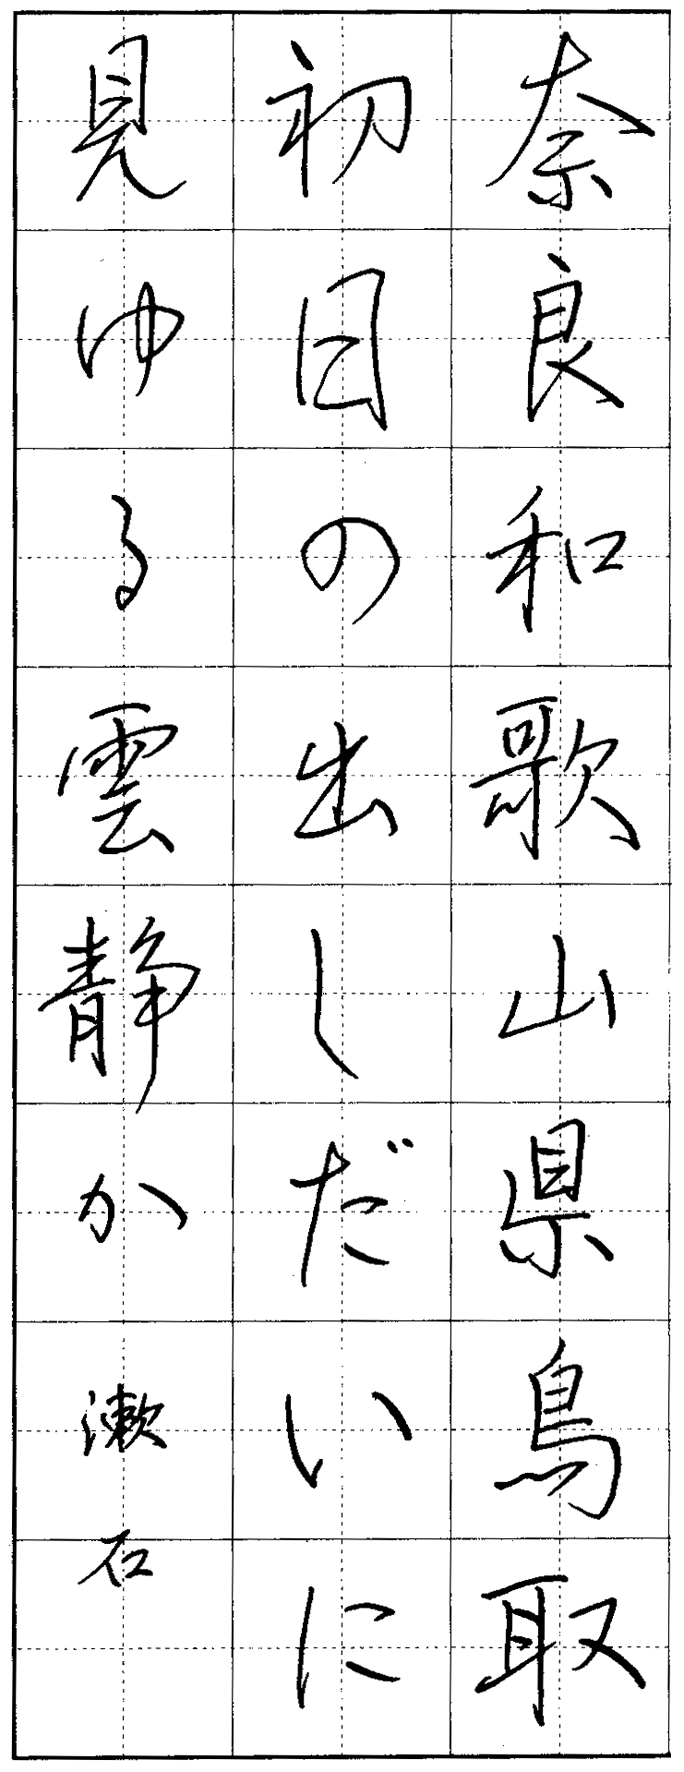 奈良和歌山県鳥取
初日の出しだいに
見ゆる雲静か 漱石